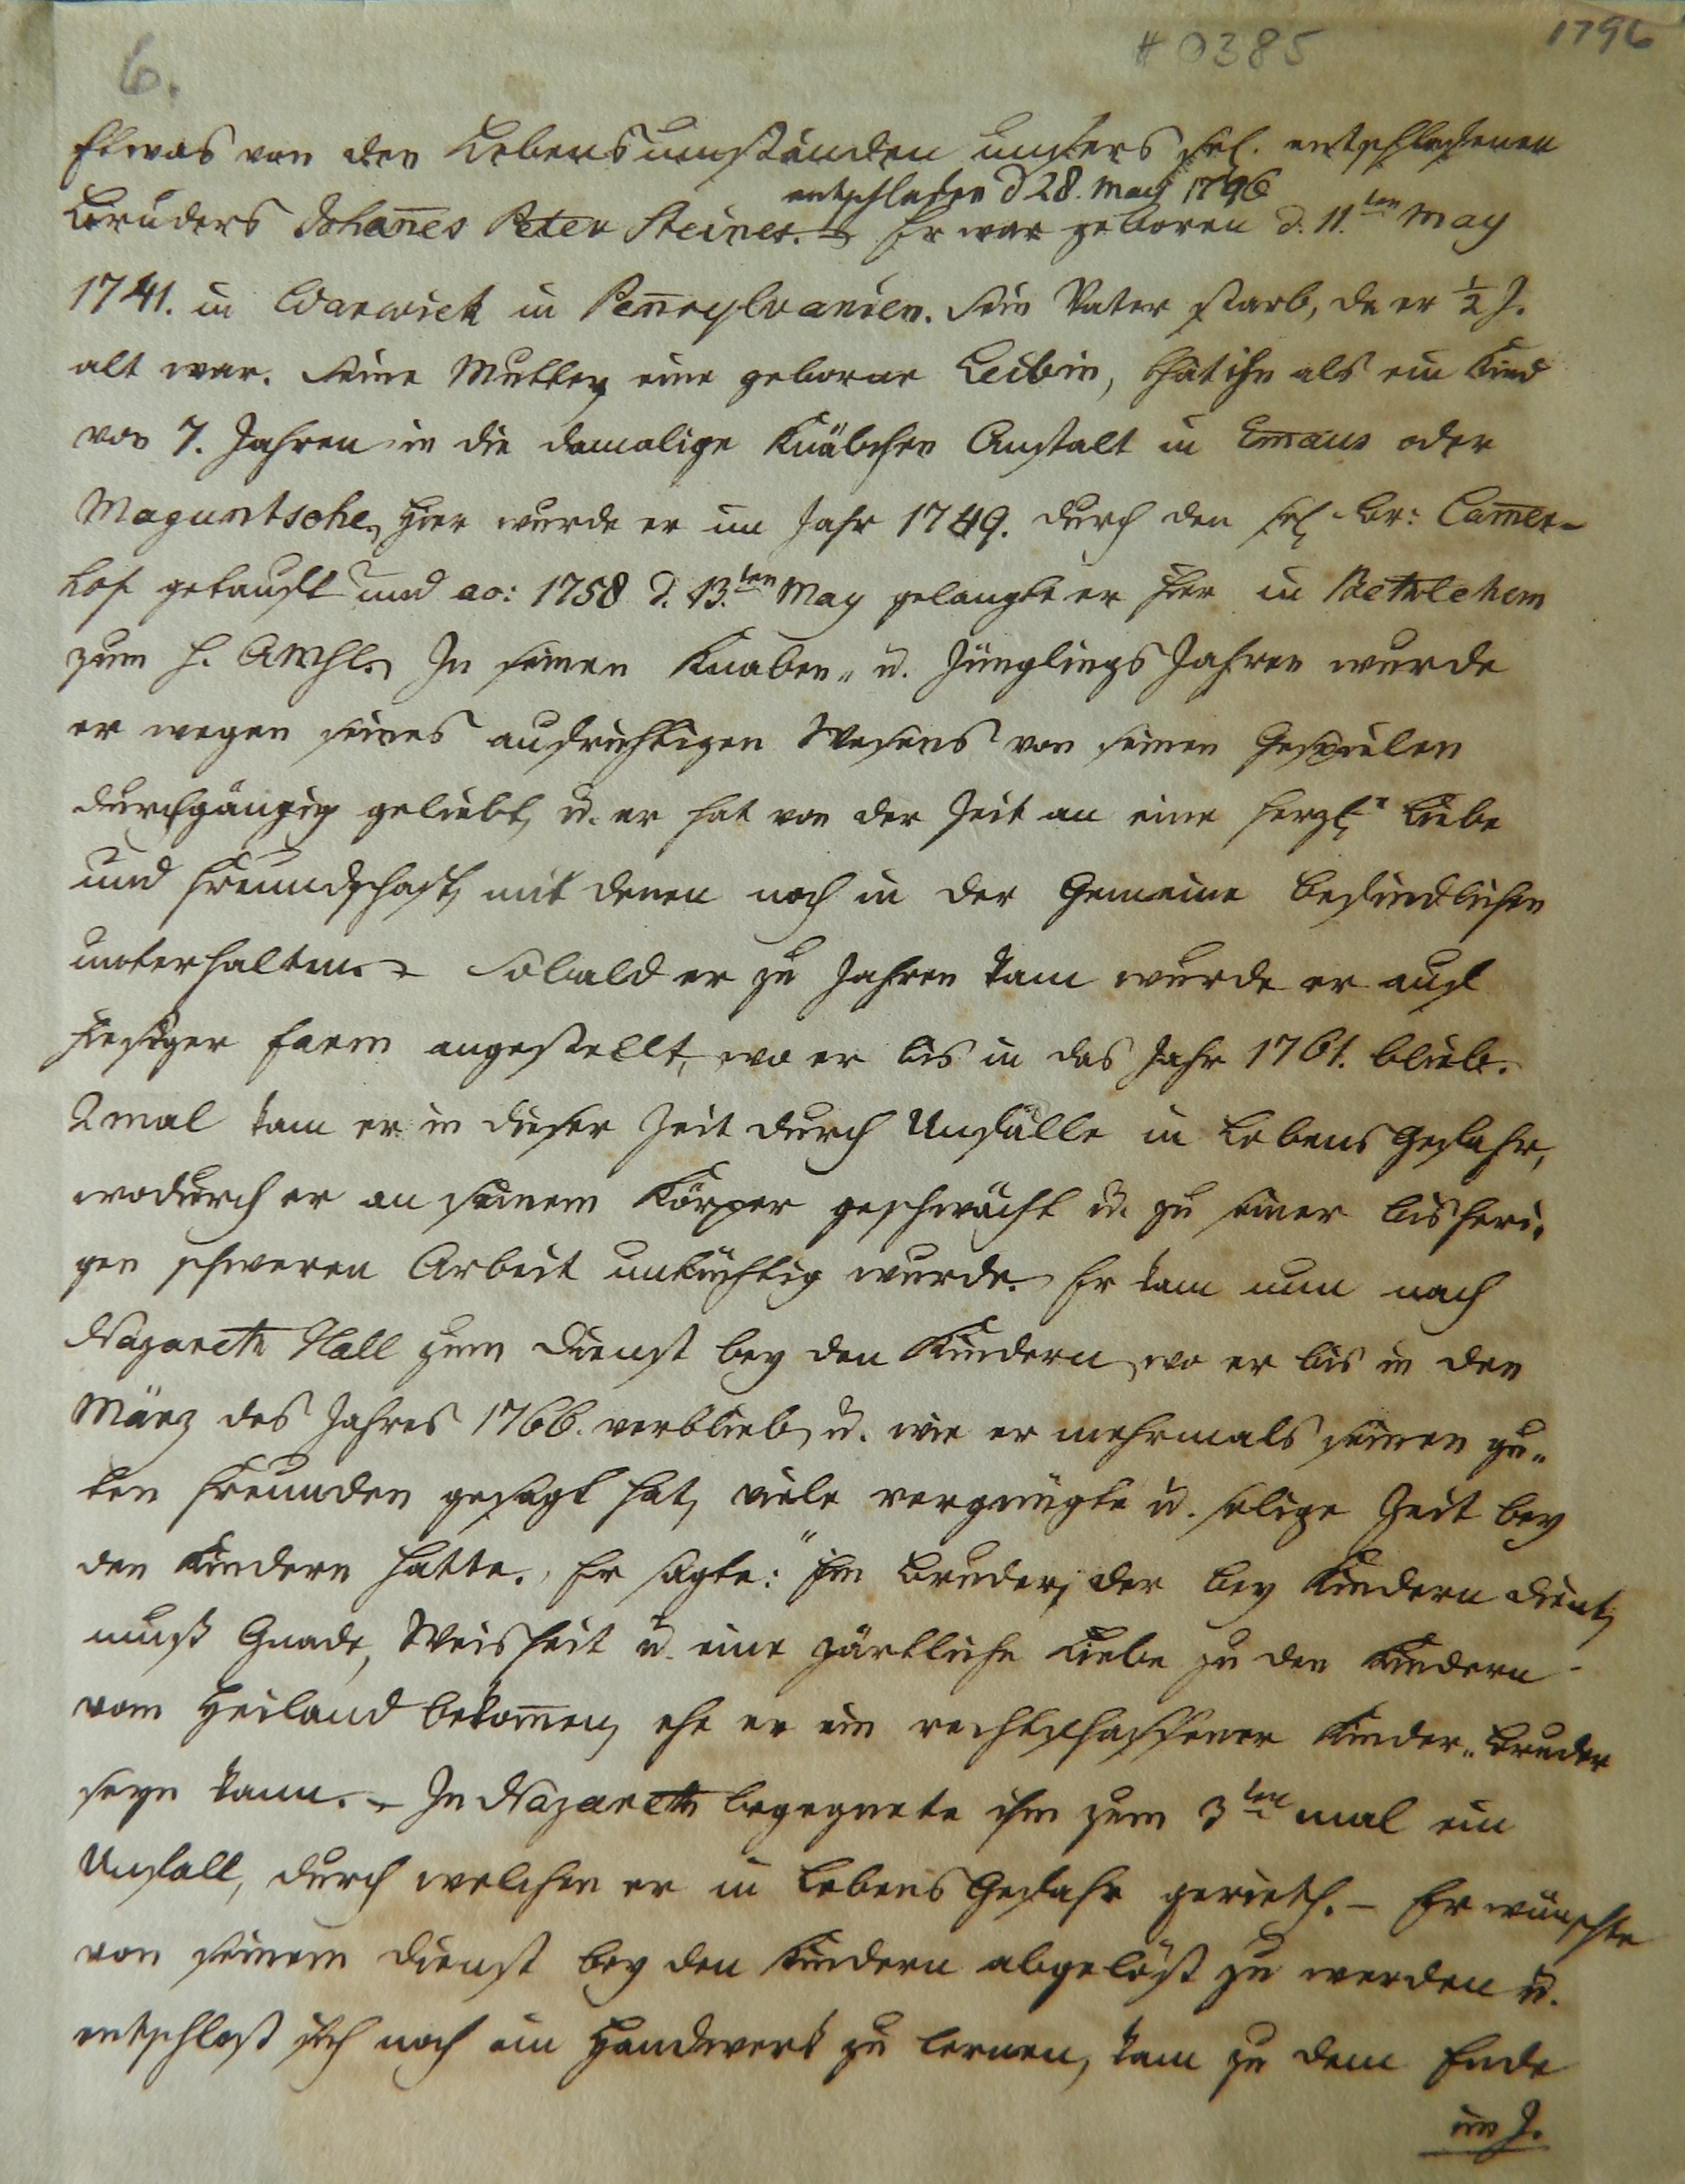 6.
# 0385
1796
Etwas von den Lebensumständen unsers sel. entschlafenen
entschlafen d 28. May 1796
Bruders Johan̄es Peter Steiner. – Er war geboren d. 11.ten May
1741. in Warwick in Pen̄sylvanien. Sein Vater starb, da er ½ J.
alt war. Seine Mutter, eine geborne Leibin, that ihn als ein Kind
von 7. Jahren in die damalige Knäbchen Anstalt in Emaus oder
Maguntsche, hier wurde er im Jahr 1749. durch den sel. Br: Cam̄er-
hof getauft und ao: 1758 d. 13.ten May gelangte er hier in Bethlehem
zum h. Abdml. In seinen Knaben- u. Jünglings Jahren wurde
er wegen seines aufrichtigen Wesens von seinen Gespielen
durchgängig geliebt, u. er hat von der Zeit an eine herzl. Liebe
und Freundschaft, mit denen noch in der Gemeine befindlichen
unterhalten. – Sobald er zu Jahren kam wurde er auf
hiesiger Farm angestellt, wo er bis in das Jahr 1761. blieb.
2 mal kam er in dieser Zeit durch Unfälle in Lebens Gefahr,
wodurch er an seinem Körper geschwächt u. zu seiner bisheri-
gen schweren Arbeit untüchtig wurde. Er kam nun nach
Nazareth Hall zum Dienst bey den Kindern, wo er bis in den
März des Jahres 1766. verblieb, u. wie er mehrmals seinen gu-
ten Freunden gesagt hat, viele vergnügte u. selige Zeit bey
den Kindern hatte. Er sagte: "Ein Bruder, der bey Kindern dient,
muß Gnade, Weisheit u. eine zärtliche Liebe zu den Kindern
vom Heiland bekom̄en, ehe er ein rechtschaffener Kinder-Bruder
seyn kann. – In Nazareth begegnete ihm zum 3ten mal ein
Unfall, durch welchen er in Lebens Gefahr gerieth. – Er wünschte
von seinem Dienst bey den Kindern abgelößt zu werden u.
entschloß sich noch ein Handwerk zu lernen, kam zu dem Ende
im J.